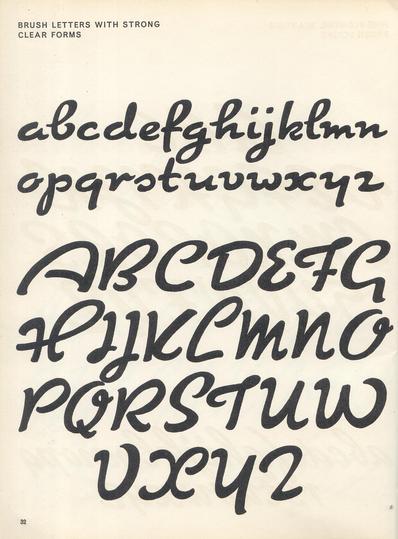 BRUSH LETTERS WITH STRONG
CLEAR FORMS
abcdefghijklmn
opqrstuvwxyz
ABCDEFG
HIJKLMNO
PQRSTUW
VXYZ
32